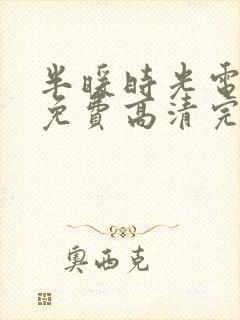 半暖時光電
免費高清完
奧西克